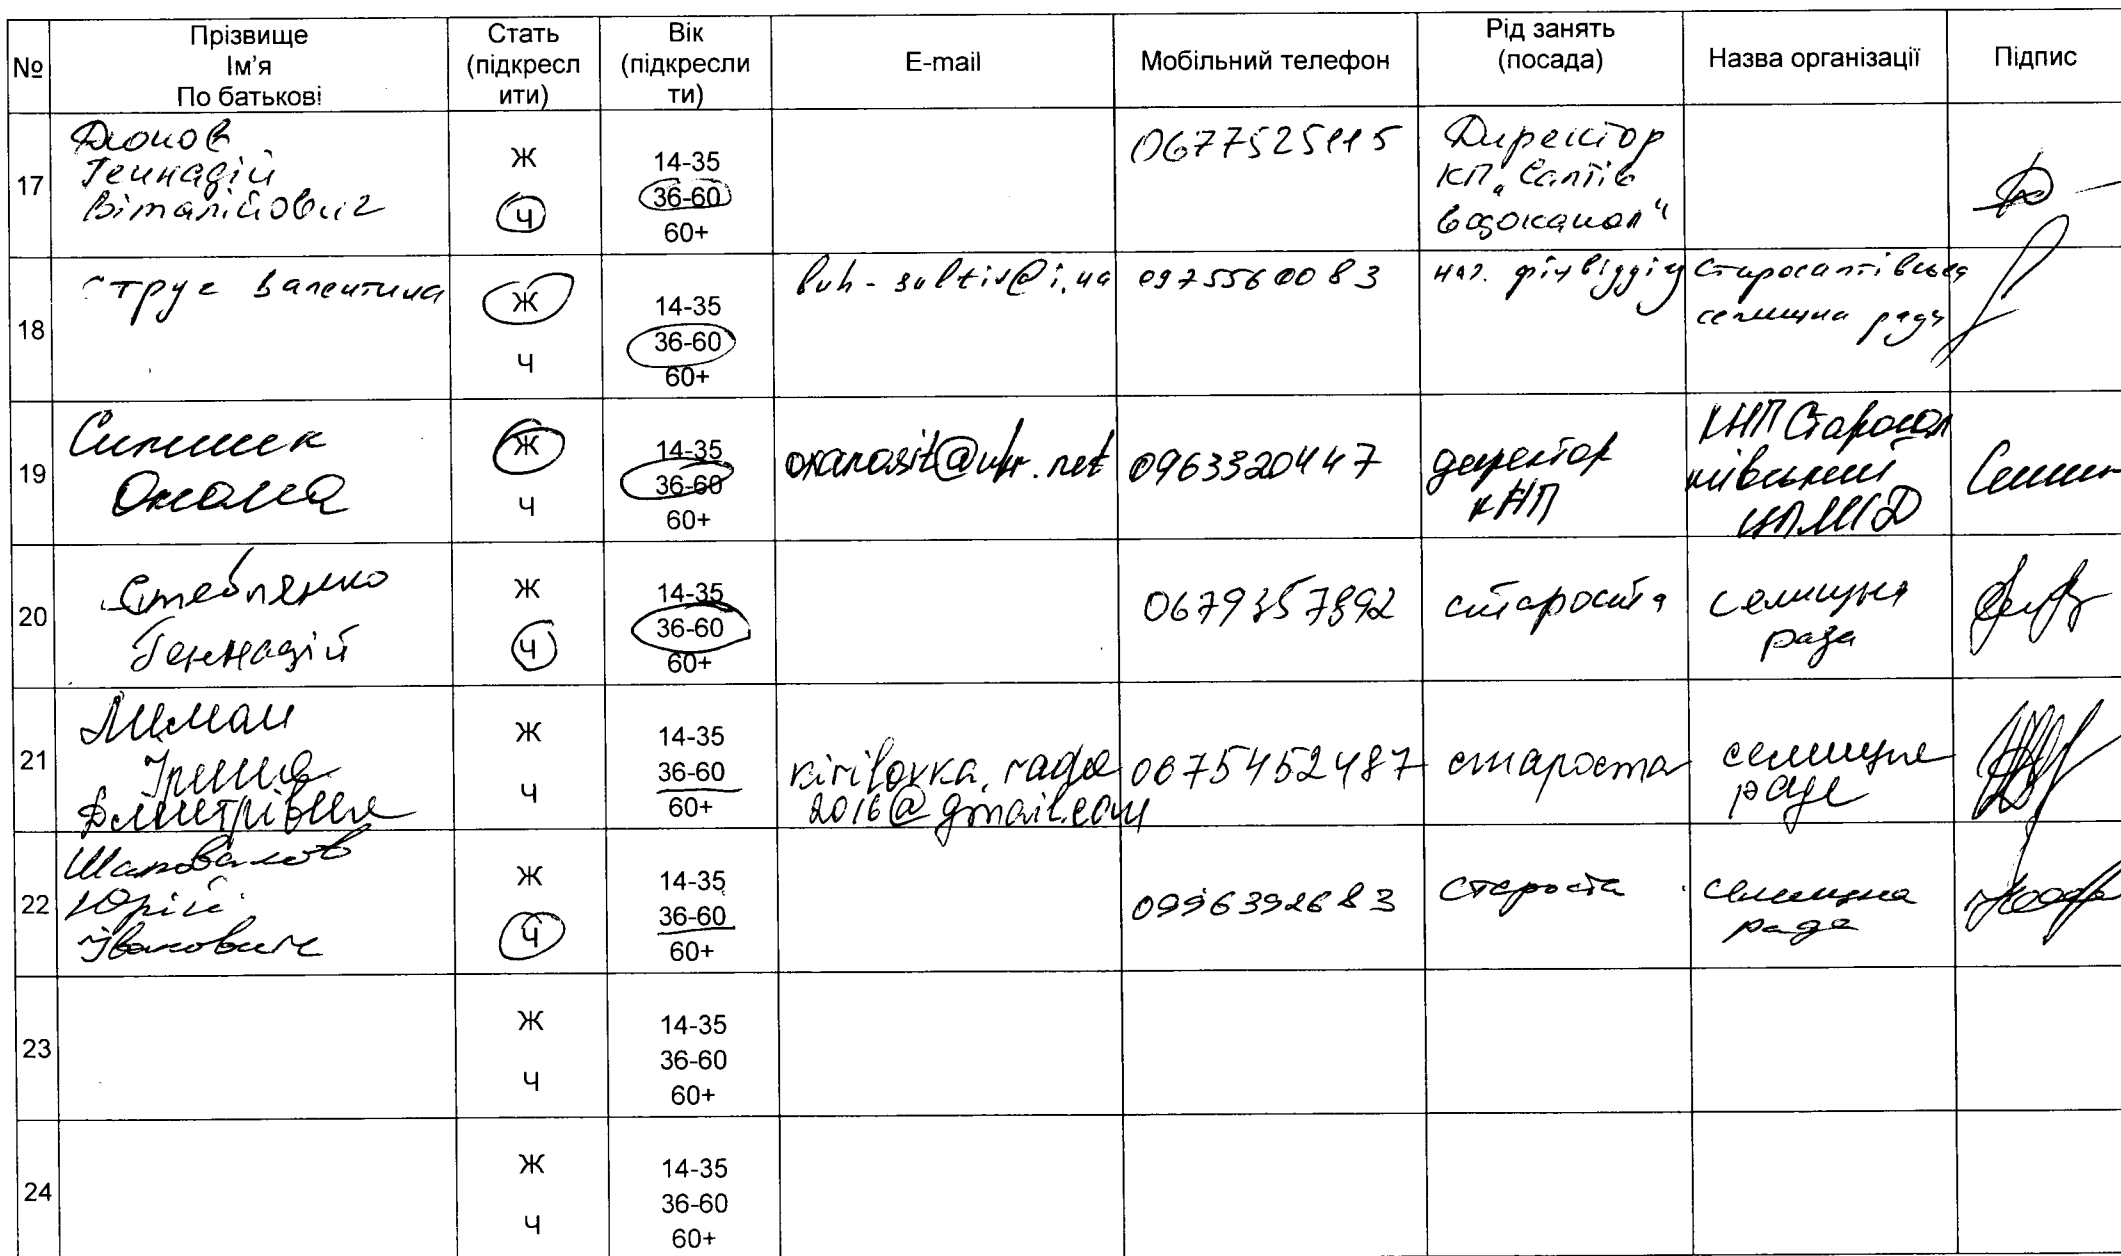 №
Прізвище
Ім'я
По батькові
Стать
(підкресл
ити)
Вік
(підкресли
ти)
E-mail
Мобільний телефон
Рід занять
(посада)
Назва організації
Підпис
17
Геннадій
Віталійович
Ж
Ч
14-35
36-60
60+
0677525115
Директор
КП „Салтів
водоканал"
18
Струс Валентина
Ж
Ч
14-35
36-60
60+
0975560083
нач. фінвідділу
Старосалтівська
селищна рада
19
Оксана
Ж
Ч
14-35
36-60
60+
oxanasit@ukr.net
0963320447
директор
КНП
КНП Старосал
тівський
ЦПМСД
20
Стебляненко
Геннадій
Ж
Ч
14-35
36-60
60+
староста
селищна
рада
21
Лиман
Ірина
Дмитрівна
Ж
Ч
14-35
36-60
60+
kirilovka.rada
2016@gmail.com
0675452487
староста
селищна
рада
22
Шаповалов
Юрій
Іванович
Ж
Ч
14-35
36-60
60+
0996392683
староста
селищна
рада
23
Ж
Ч
14-35
36-60
60+
24
Ж
Ч
14-35
36-60
60+